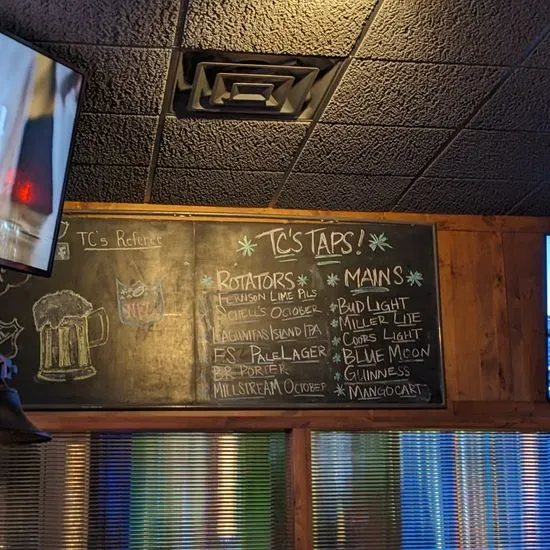 TC's Referee
TC'S TAPS!
ROTATORS
FERNSON LIME PILS
SCHELL'S OCTOBER
LAGUNITAS ISLAND IPA
FS PALE LAGER
B.R PORTER
MILLSTREAM OCTOBER
MAINS
BUD LIGHT
MILLER LITE
COORS LIGHT
BLUE MOON
GUINNESS
MANGO CART
NFL